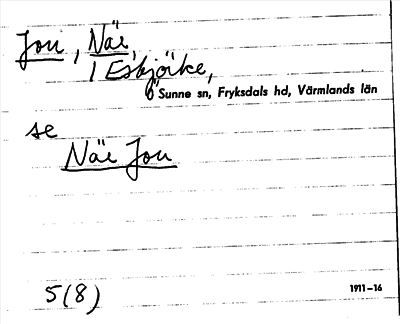 Jon, Näe,
i Esbjörke,
Sunne sn, Fryksdals hd, Värmlands län
se
Näe Jon
5(8)
1911–16